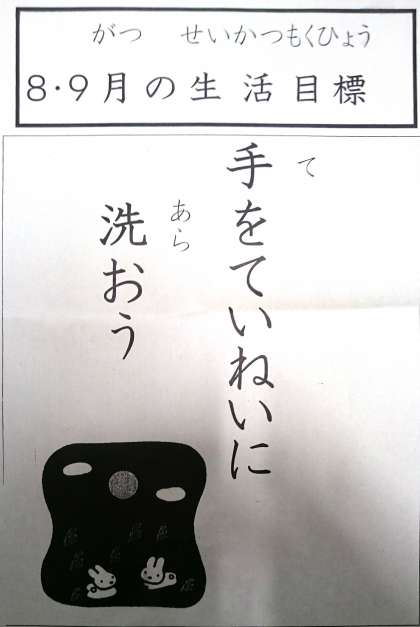 がつ せいかつもくひょう
8・9月の生活目標
て
手をていねいに
あら
洗おう